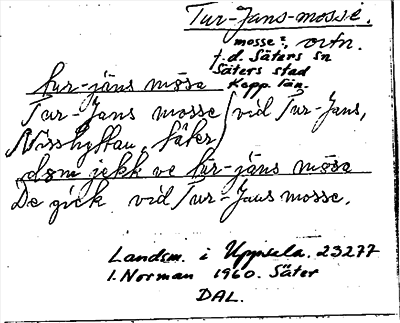 Tur-Jans-mosse.
mosse?, ortn.
f.d. Säters sn
Säters stad
Kopp. län.
tur-jäns måsa
Tur-Jans mosse vid Tur-Jans,
Nisshyttan, Säter
dom jekk ve tur-jäns måsa
De gick vid Tur-Jans mosse.
Landsm. i Uppsala. 23277
I. Norman 1960. Säter
DAL.